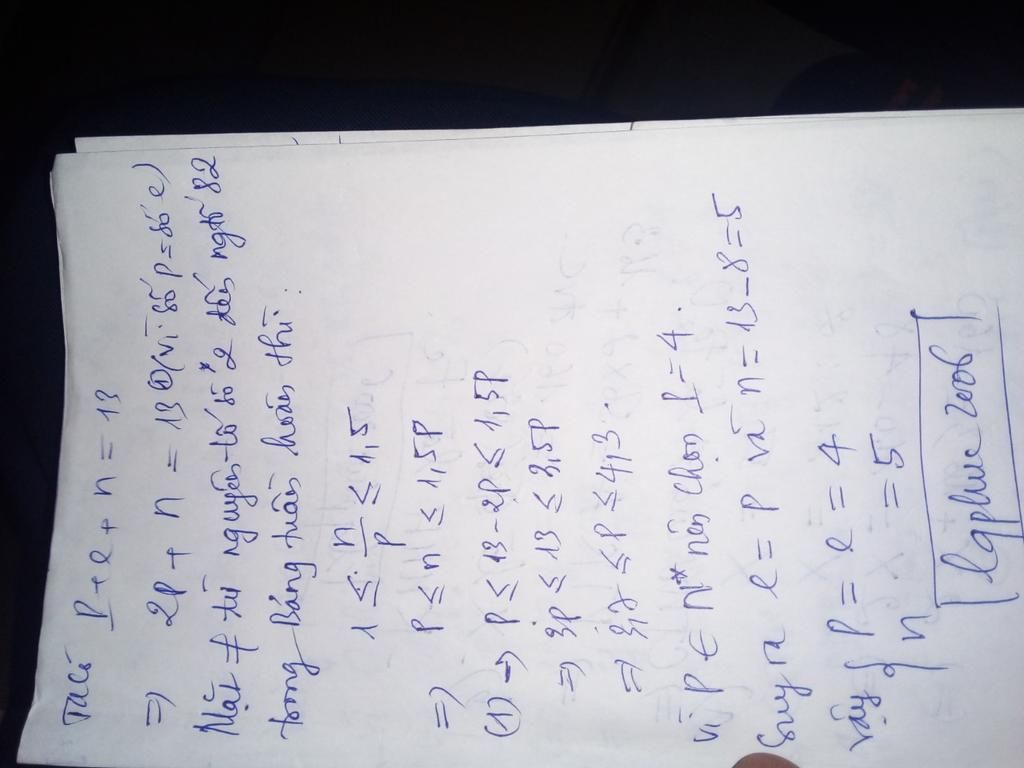 Ta có P + e + n = 13
=> 2P + n = 13 (1) (vì số P = số e)
Mặt ≠ từ nguyên tố số 2 đến ngtố 82
trong Bảng tuần hoàn thì:
1 ≤ n/P ≤ 1,5
=> P ≤ n ≤ 1,5P
(1) → P ≤ 13 - 2P ≤ 1,5P
=> 3P ≤ 13 ≤ 3,5P
=> 3,7 ≤ P ≤ 4,3
Vì P ∈ N* nên chọn P = 4.
Suy ra e = P và n = 13 - 8 = 5
Vậy { P = e = 4
n = 5
lqphuc2006